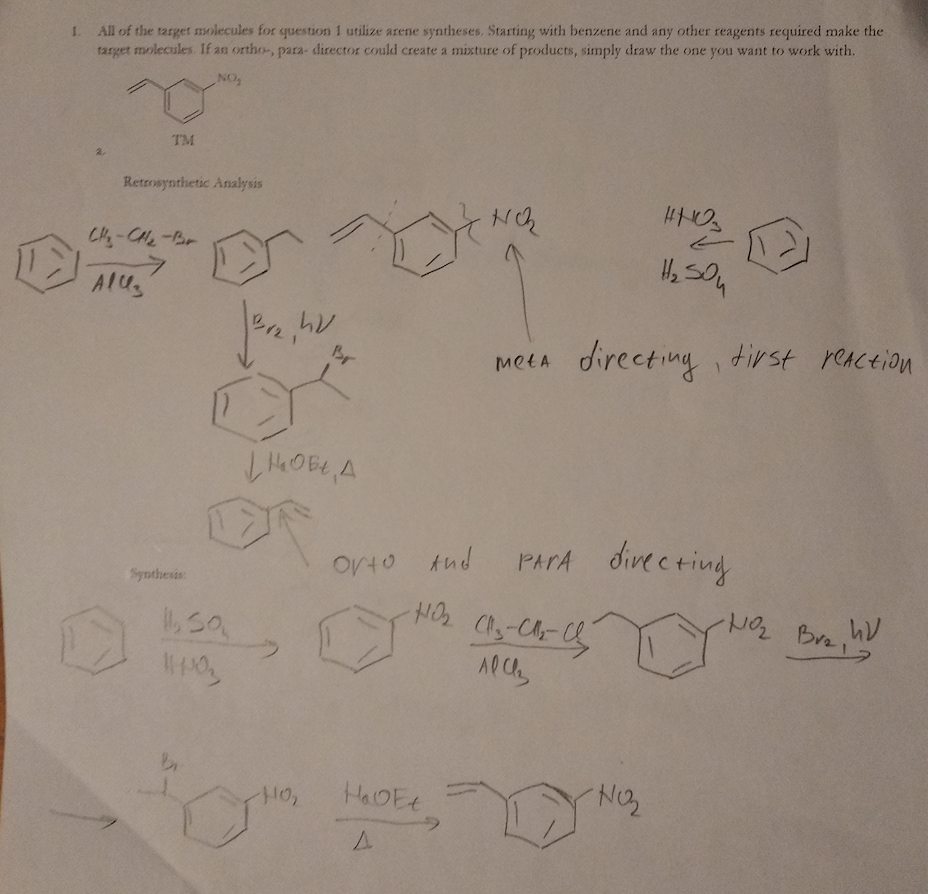 1. All of the target molecules for question 1 utilize arene syntheses. Starting with benzene and any other reagents required make the
target molecules. If an ortho-, para- director could create a mixture of products, simply draw the one you want to work with.
NO₂
TM
a.
Retrosynthetic Analysis
CH₃-CH₂-Br
AlCl₃
NO₂
HNO₃
H₂SO₄
Br₂, hν
Br
metA directing, first reaction
NaOEt, Δ
orto and PARA directing
Synthesis:
H₂SO₄
HNO₃
NO₂
CH₃-CH₂-Cl
AlCl₃
NO₂
Br₂, hν
Br
NO₂
NaOEt
Δ
NO₂